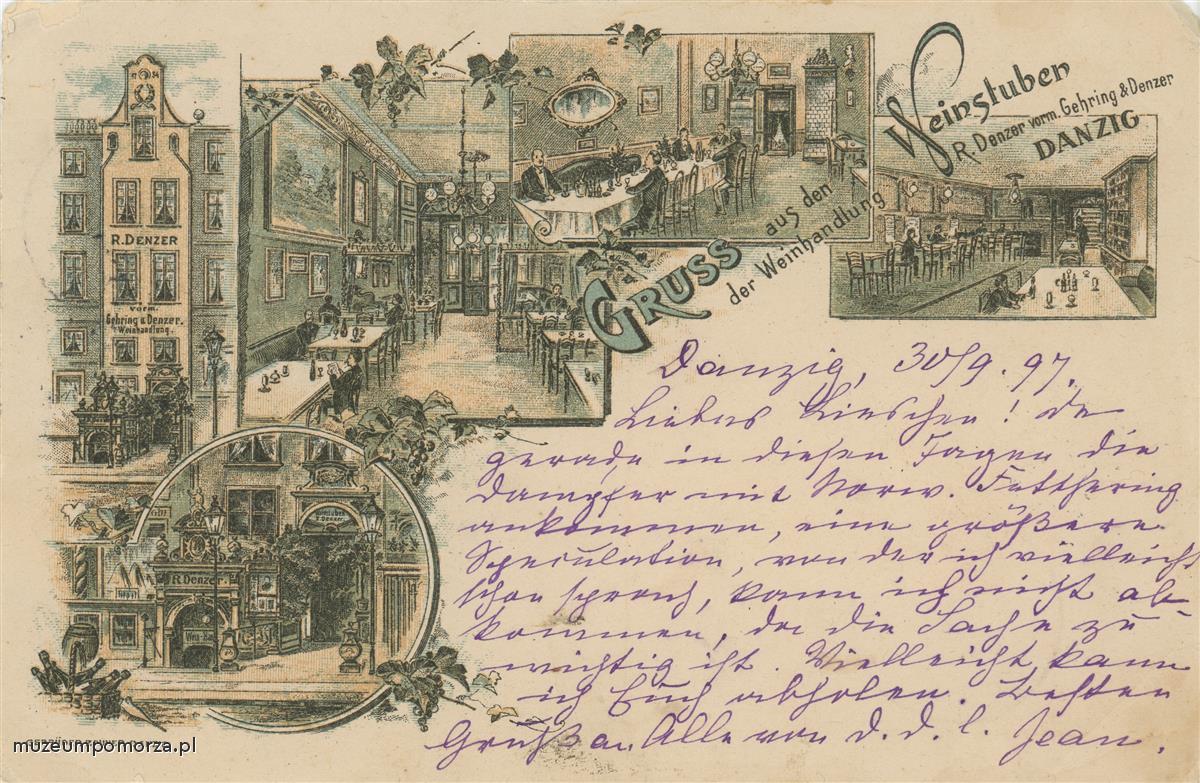 17 54
R. DENZER
vorm.
Gehring & Denzer.
Weinhandlung.
GRUSS aus den
Weinstuben
der Weinhandlung
R. Denzer vorm. Gehring & Denzer
DANZIG
R. Denzer.
Danzig, 30/9. 97.
Liebes Lieschen! da
gerade in diesen Tagen die
Dampfer mit Norw. Fetthering
ankommen, eine größere
Speculation, von der ich vielleicht
schon sprach, kann ich nicht ab-
kommen, da die Sache zu
wichtig ist. Vielleicht kann
ich Euch abholen. Besten
Gruß an Alle von d. d. l. Jean.
muzeumpomorza.pl